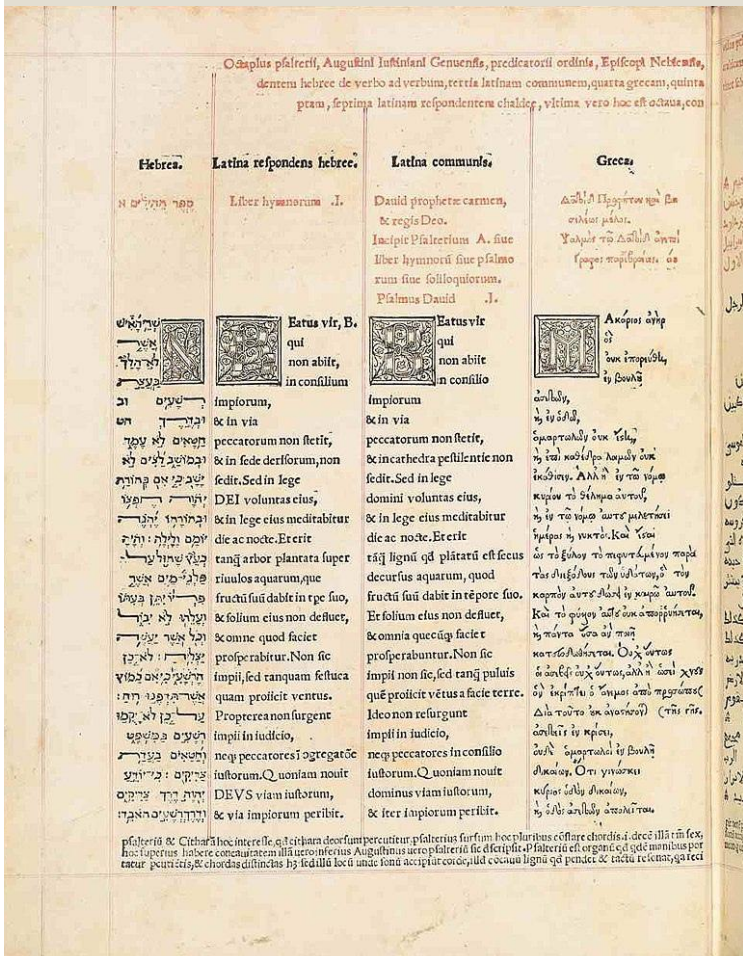 Octaplus psalterii, Augustini Iustiniani Genuensis, predicatorii ordinis, Episcopi Nebiensis,
dentem hebree de verbo ad verbum, tertia latinam communem, quarta grecam, quinta
ptam, septima latinam respondentem chaldee, vltima vero hoc est octaua, con
Hebrea.
ספר תהילים א
אשרי האיש
אשר
לא הלך
בעצת
רשעים
ובדרך
חטאים לא עמד
ובמושב לצים לא
ישב כי אם בתורת
יהוה חפצו
ובתורתו יהגה
יומם ולילה: והיה
כעץ שתול על
פלגי מים אשר
פריו יתן בעתו
ועלהו לא יבול
וכל אשר יעשה
יצליח: לא כן
הרשעים כי אם כמוץ
אשר תדפנו רוח:
על כן לא יקמו
רשעים במשפט
וחטאים בעדת
צדיקים: כי יודע
יהוה דרך צדיקים
ודרך רשעים תאבד:
Latina respondens hebree.
Liber hymnorum .I.
BEatus vir, B.
qui
non abiit,
in consilium
impiorum,
& in via
peccatorum non stetit,
& in sede derisorum, non
sedit. Sed in lege
DEI voluntas eius,
& in lege eius meditabitur
die ac nocte. Et erit
tanq̃ arbor plantata super
riuulos aquarum, que
fructũ suũ dabit in tp̃e suo,
& folium eius non defluet,
& omne quod faciet
prosperabitur. Non sic
impii, sed tanquam festuca
quam proiicit ventus.
Propterea non surgent
impii in iudicio,
neqȝ peccatores ĩ ɔgregatõe
iustorum. Quoniam nouit
DEVS viam iustorum,
& via impiorum peribit.
Latina communis.
Dauid prophetæ carmen,
& regis Deo.
Incipit Psalterium A. siue
liber hymnorũ siue psalmo
rum siue soliloquiorum.
Psalmus Dauid .I.
BEatus vir
qui
non abiit
in consilio
impiorum,
& in via
peccatorum non stetit,
& in cathedra pestilentie non
sedit. Sed in lege
domini voluntas eius,
& in lege eius meditabitur
die ac nocte. Et erit
tãq̃ lignũ qd̃ plãtatũ est secus
decursus aquarum, quod
fructũ suũ dabit in tẽpore suo.
Et folium eius non defluet,
& omnia quecũqȝ faciet
prosperabuntur. Non sic
impii non sic, sed tanq̃ puluis
quẽ proiicit vẽtus a facie terre.
Ideo non resurgunt
impii in iudicio,
neqȝ peccatores in consilio
iustorum. Quoniam nouit
dominus viam iustorum,
& iter impiorum peribit.
Greca.
Δαβὶδ Προφήτου καὶ βα
σιλέως μέλος.
Ψαλμὸς τῷ Δαβὶδ
ΜΑκάριος ἀνὴρ
ὃς
οὐκ ἐπορεύθη,
ἐν βουλῇ
ἀσεβῶν,
καὶ ἐν ὁδῷ,
ἁμαρτωλῶν οὐκ ἔστη,
καὶ ἐπὶ καθέδρα λοιμῶν οὐκ
ἐκάθισεν. Ἀλλ' ἢ ἐν τῷ νόμῳ
κυρίου τὸ θέλημα αὐτοῦ,
καὶ ἐν τῷ νόμῳ αὐτοῦ μελετήσει
ἡμέρας καὶ νυκτός. Καὶ ἔσαι
ὡς τὸ ξύλον τὸ πεφυτευμένον παρὰ
τὰς διεξόδους τῶν ὑδάτων, ὃ τὸν
καρπὸν αὐτοῦ δώσει ἐν καιρῷ αὐτοῦ.
Καὶ τὸ φύλλον αὐτοῦ οὐκ ἀπορρυήσεται,
καὶ πάντα ὅσα ἂν ποιῇ
κατευοδωθήσεται. Οὐχ οὕτως
οἱ ἀσεβεῖς οὐχ οὕτως, ἀλλ' ἢ ὡσεὶ χνοῦς
ὃν ἐκρίπτει ὁ ἄνεμος ἀπὸ προσώπου (
Διὰ τοῦτο οὐκ ἀναστήσονται) (τῆς γῆς.
ἀσεβεῖς ἐν κρίσει,
οὐδὲ ἁμαρτωλοὶ ἐν βουλῇ
δικαίων. Ὅτι γινώσκει
κύριος ὁδὸν δικαίων,
καὶ ὁδὸς ἀσεβῶν ἀπολεῖται.
psalteriũ & Citharã hoc interesse, qd̃ cithara deorsum percutitur, psalteriuȝ sursum hoc pluribus cõstare chordis .i. decẽ illã tm̃ sex,
hoc superius habere concauitatem illã uero inferius Augustinus uero psalteriũ sic descripsit. Psalteriũ est organũ qd̃ qdẽ manibus por
tatur pcutiẽtis, & chordas distinctas hȝ sed illũ locũ unde sonũ accipiũt corde, illd cõcauũ lignũ qd pendet & tactũ resonat, qa reci